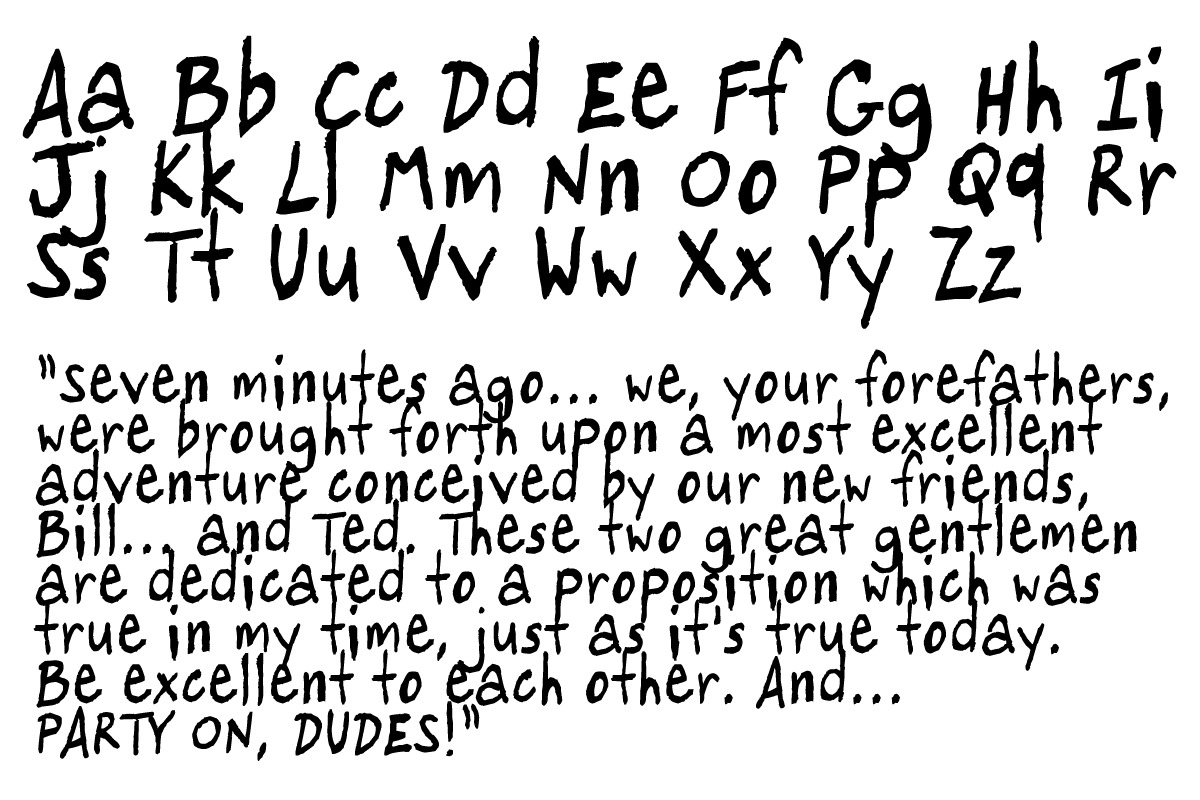 Aa Bb Cc Dd Ee Ff Gg Hh Ii
Jj Kk Ll Mm Nn Oo Pp Qq Rr
Ss Tt Uu Vv Ww Xx Yy Zz
"seven minutes ago... we, your forefathers,
were brought forth upon a most excellent
adventure conceived by our new friends,
Bill... and Ted. These two great gentlemen
are dedicated to a proposition which was
true in my time, just as it's true today.
Be excellent to each other. And...
PARTY ON, DUDES!"